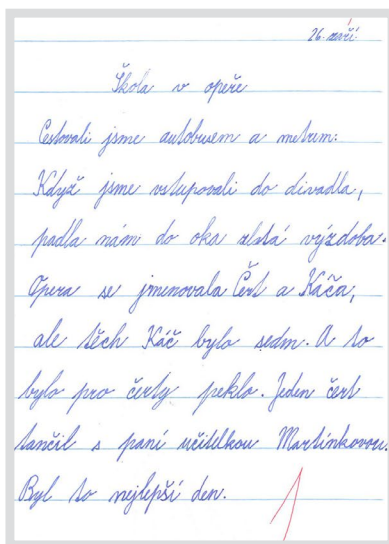 26. září
Škola v opeře
Cestovali jsme autobusem a metrem.
Když jsme vstupovali do divadla,
padla nám do oka zlatá výzdoba.
Opera se jmenovala Čert a Káča,
ale těch Káč bylo sedm. A to
bylo pro čerty peklo. Jeden čert
tančil s paní učitelkou Martínkovou.
Byl to nejlepší den.
1